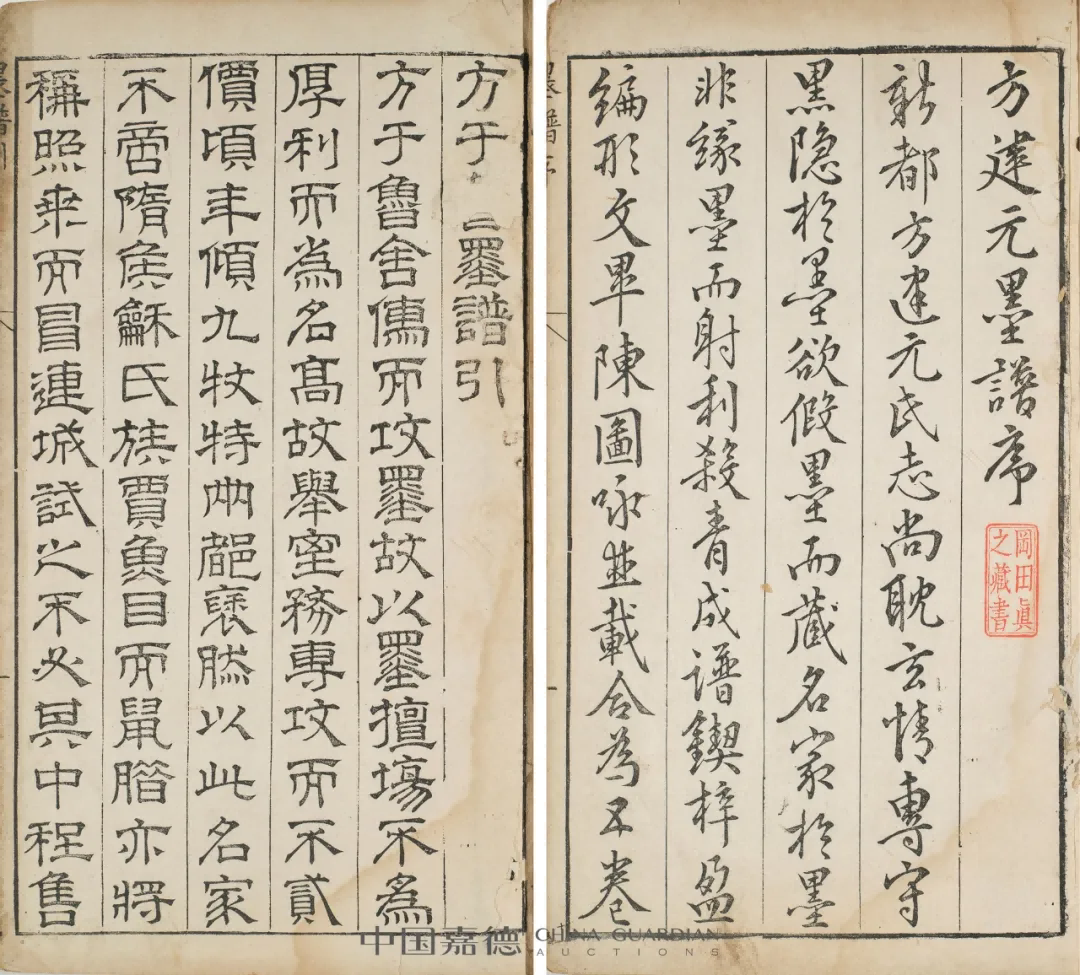 方建元墨譜序
新都方建元氏志尚耽玄情專守
黑隐於墨欲假墨而藏名家於墨
非緣墨而射利殺青成譜鍥梓盈
編形文畢陳圖咏並載合為五卷
岡田眞
之藏書
方于墨譜引
方于魯舍儒而攻墨故以墨擅塲不為
厚利而為名高故舉室務專攻而不貳
價頃年傾九牧特兩都褎然以此名家
不啻隋侯龢氏族賈魚目而鼠腊亦將
稱照乘而冒連城試之不必其中程售
中国嘉德 CHINA GUARDIAN
AUCTIONS